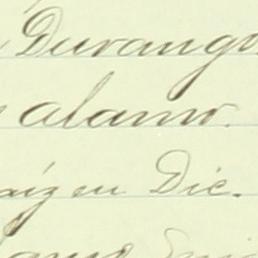 Durango
alamo.
aiz en Dic.